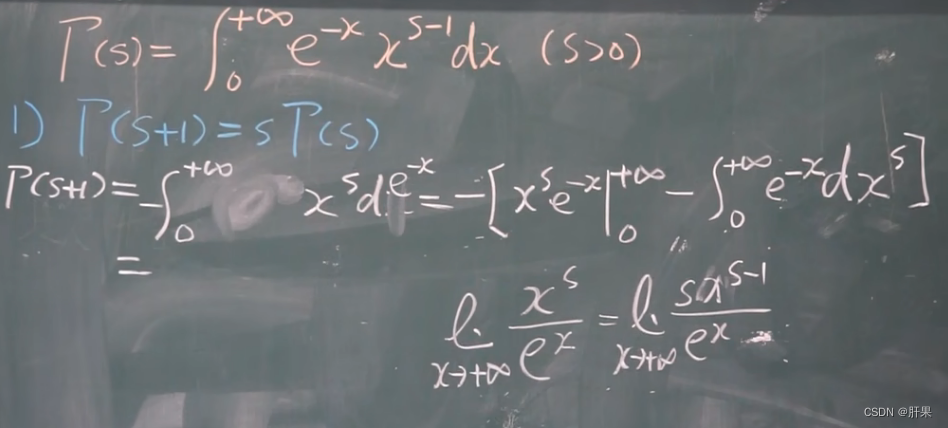 Γ(s) = ∫₀^{+∞} e^{-x} x^{s-1} dx (s>0)
1) Γ(s+1) = s Γ(s)
Γ(s+1) = -∫₀^{+∞} x^s de^{-x} = -[x^s e^{-x}|₀^{+∞} - ∫₀^{+∞} e^{-x} dx^s]
=
l. _{x→+∞} x^s/e^x = l. _{x→+∞} sx^{s-1}/e^x
CSDN @肝果